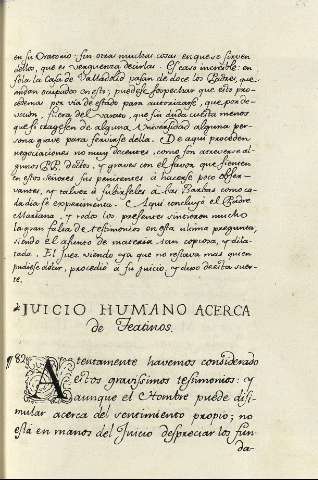 en su Oratorio: sin otras muchas cosas en que se sirven
dellos, que es verguenza decirlas. Es caso increible: en
sola la Casa de Valladolid pasan de doce los Padres, que
andan ocupados en esto; puedese sospechar que esto pro-
cede mas por via de estado para autorizarse, que por de-
vocion, fuera del gasto, que sin duda cuesta menos
que si tragesen de alguna Universidad alguna per-
sona grave para servirse della. De aqui proceden
negociaciones no muy decentes, como son atreverse al-
gunos PP. doctos, y graves con el favor que sienten
en estos Señores sus penitentes á hacerse poco obser-
vantes, y tal vez á subirseles á las Barbas como ca-
da dia se experimenta. Aqui concluyó el Padre
Mariana, y todos los presentes sintieron mucho
la gran falta de testimonios en esta ultima pregunta,
siendo el asunto de materia tan copiosa, y dila-
tada. El Juez viendo ya que no restava mas quien
pudiese decir, procedió a su juicio, y dixo de esta suer-
te.
JUICIO HUMANO ACERCA
de Teatinos.
¶ 82 Atentamente havemos considerado
estos gravissimos testimonios: y
aunque el Hombre puede disi-
mular acerca del sentimiento propio; no
está en manos del Juicio despreciar los fun-
da-